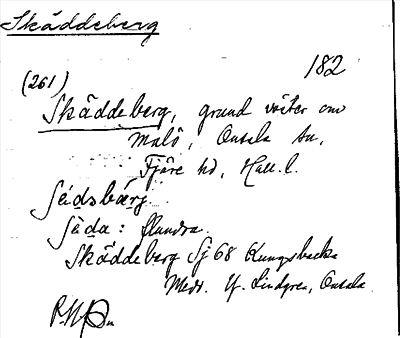 Skäddeberg
182
(261)
Skäddeberg, grund väster om
Malö, Onsala sn,
Fjäre hd, Hall. l.
Sädsbärj.
Säda: flundra.
Skäddeberg Sj 68 Kungsbacka
Medd. Lindgren, Onsala